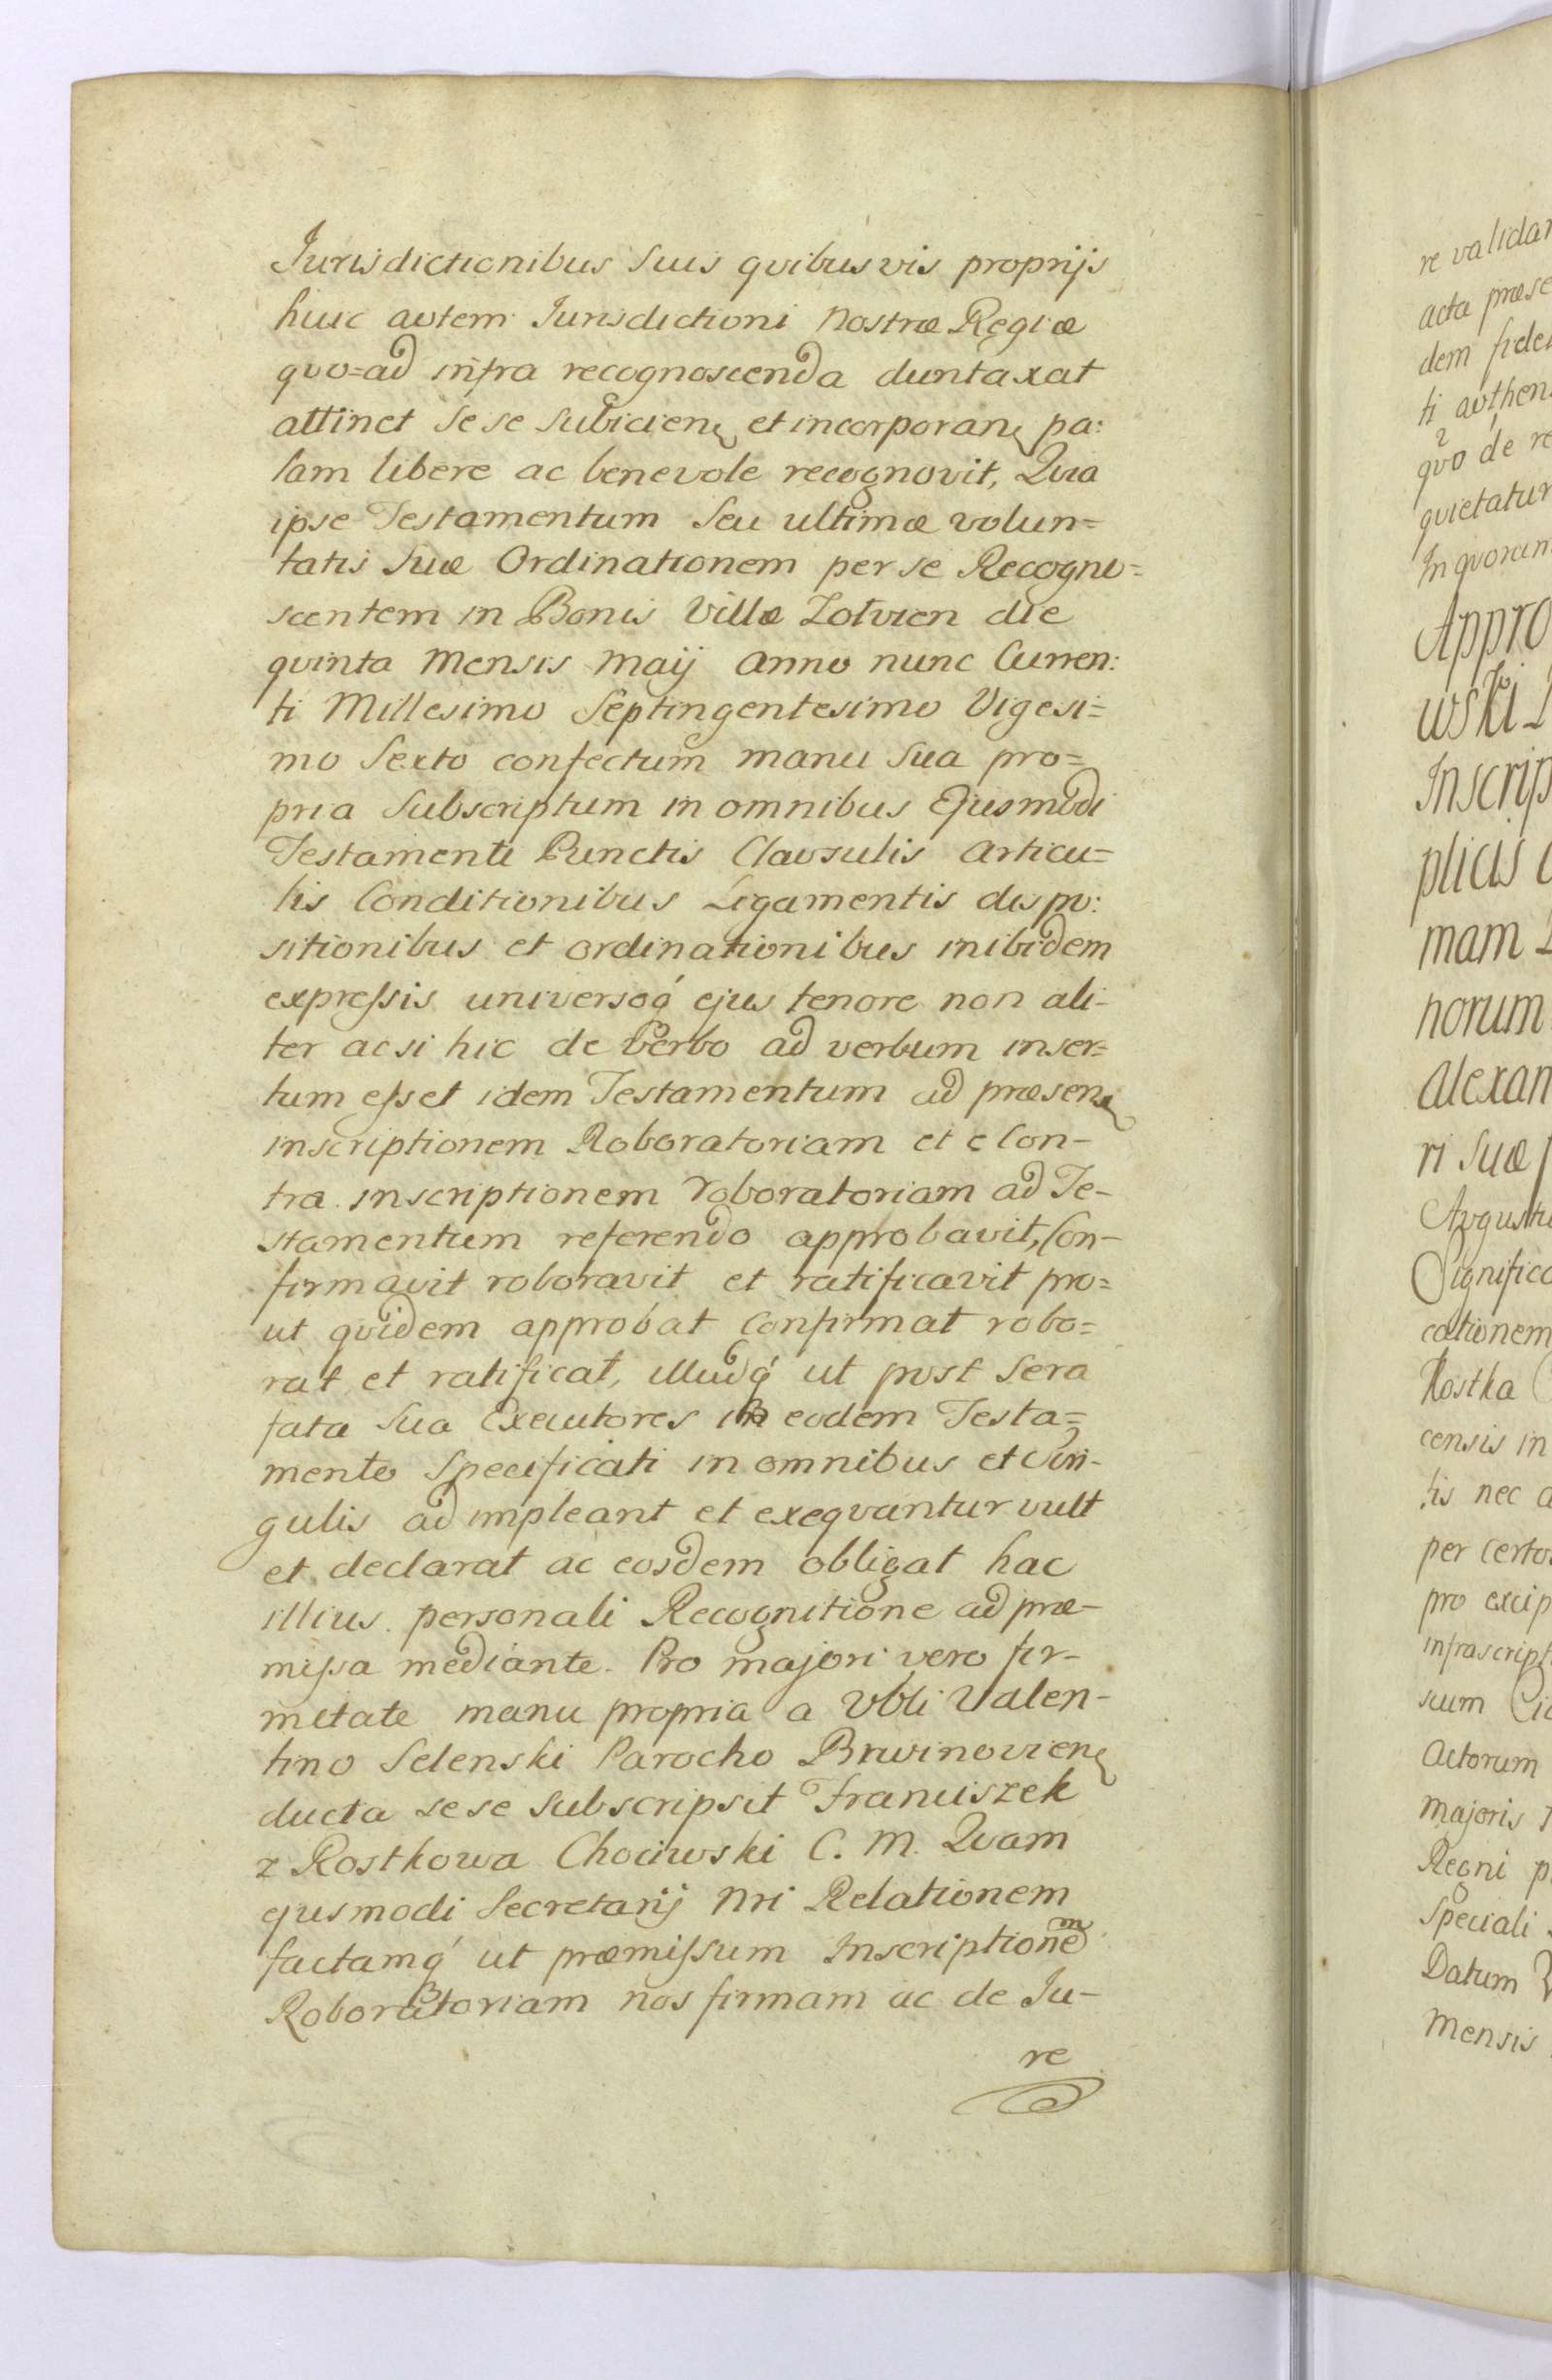 Jurisdictionibus Suis qvibusvis proprijs
huic autem Jurisdictioni Nostræ Regiæ
qvo=ad infra recognoscenda duntaxat
attinet Sese Subicien. et incorporan. pa:
lam libere ac benevole recognovit, Qvia
ipse Testamentum Seu ultimæ volun=
tatis Suæ Ordinationem per se Recogno=
scentem in Bonis Villæ Zotvien die
qvinta Mensis Maij Anno nunc Curren:
ti Millesimo Septingentesimo Vigesi=
mo Sexto confectum manu Sua pro=
pria Subscriptum in omnibus Ejusmodi
Testamenti Punctis Clavsulis Articu=
lis Conditionibus Ligamentis dispo:
sitionibus et ordinationibus inibidem
expressis universoq́ ejus tenore non ali-
ter acsi hic de Verbo ad verbum inser=
tum esset idem Testamentum ad præsen.
inscriptionem Roboratoriam et e Con-
tra inscriptionem roboratoriam ad Te-
stamentum referendo approbavit, Con-
firmavit roboravit et ratificavit pro=
ut qvidem approbat Confirmat robo=
rat et ratificat, illudq́ ut post Sera
fata Sua Executores in eodem Testa=
mento Specificati in omnibus et Sin-
gulis adimpleant et exeqvantur vult
et declarat ac eosdem obligat hac
illius personali Recognitione ad præ-
missa mediante. Pro majori vero fir-
mitate manu propria a Vbli Valen-
tino Selenski Parocho Brwinovien.
ducta sese Subscripsit Franciszek
z Rostkowa Chociwski C. M. Qvam
ejusmodi Secretarij Nri Relationem
factamq́ ut præmissum Inscriptionem
Roboratoriam nos firmam ac de Ju-
re
re validam
acta præse
dem fide
ti avthen
qvo de re
qvietatur
In qvorum
Appro
wski
Inscrip
plicis
mam
norum
Alexan
ri Suæ
Avgusti
Significa
cationem
Kostka
censis in
tis nec a
per certo
pro excip
infrascript
suum
Actorum
majoris
Regni p
Speciali
Datum
Mensis